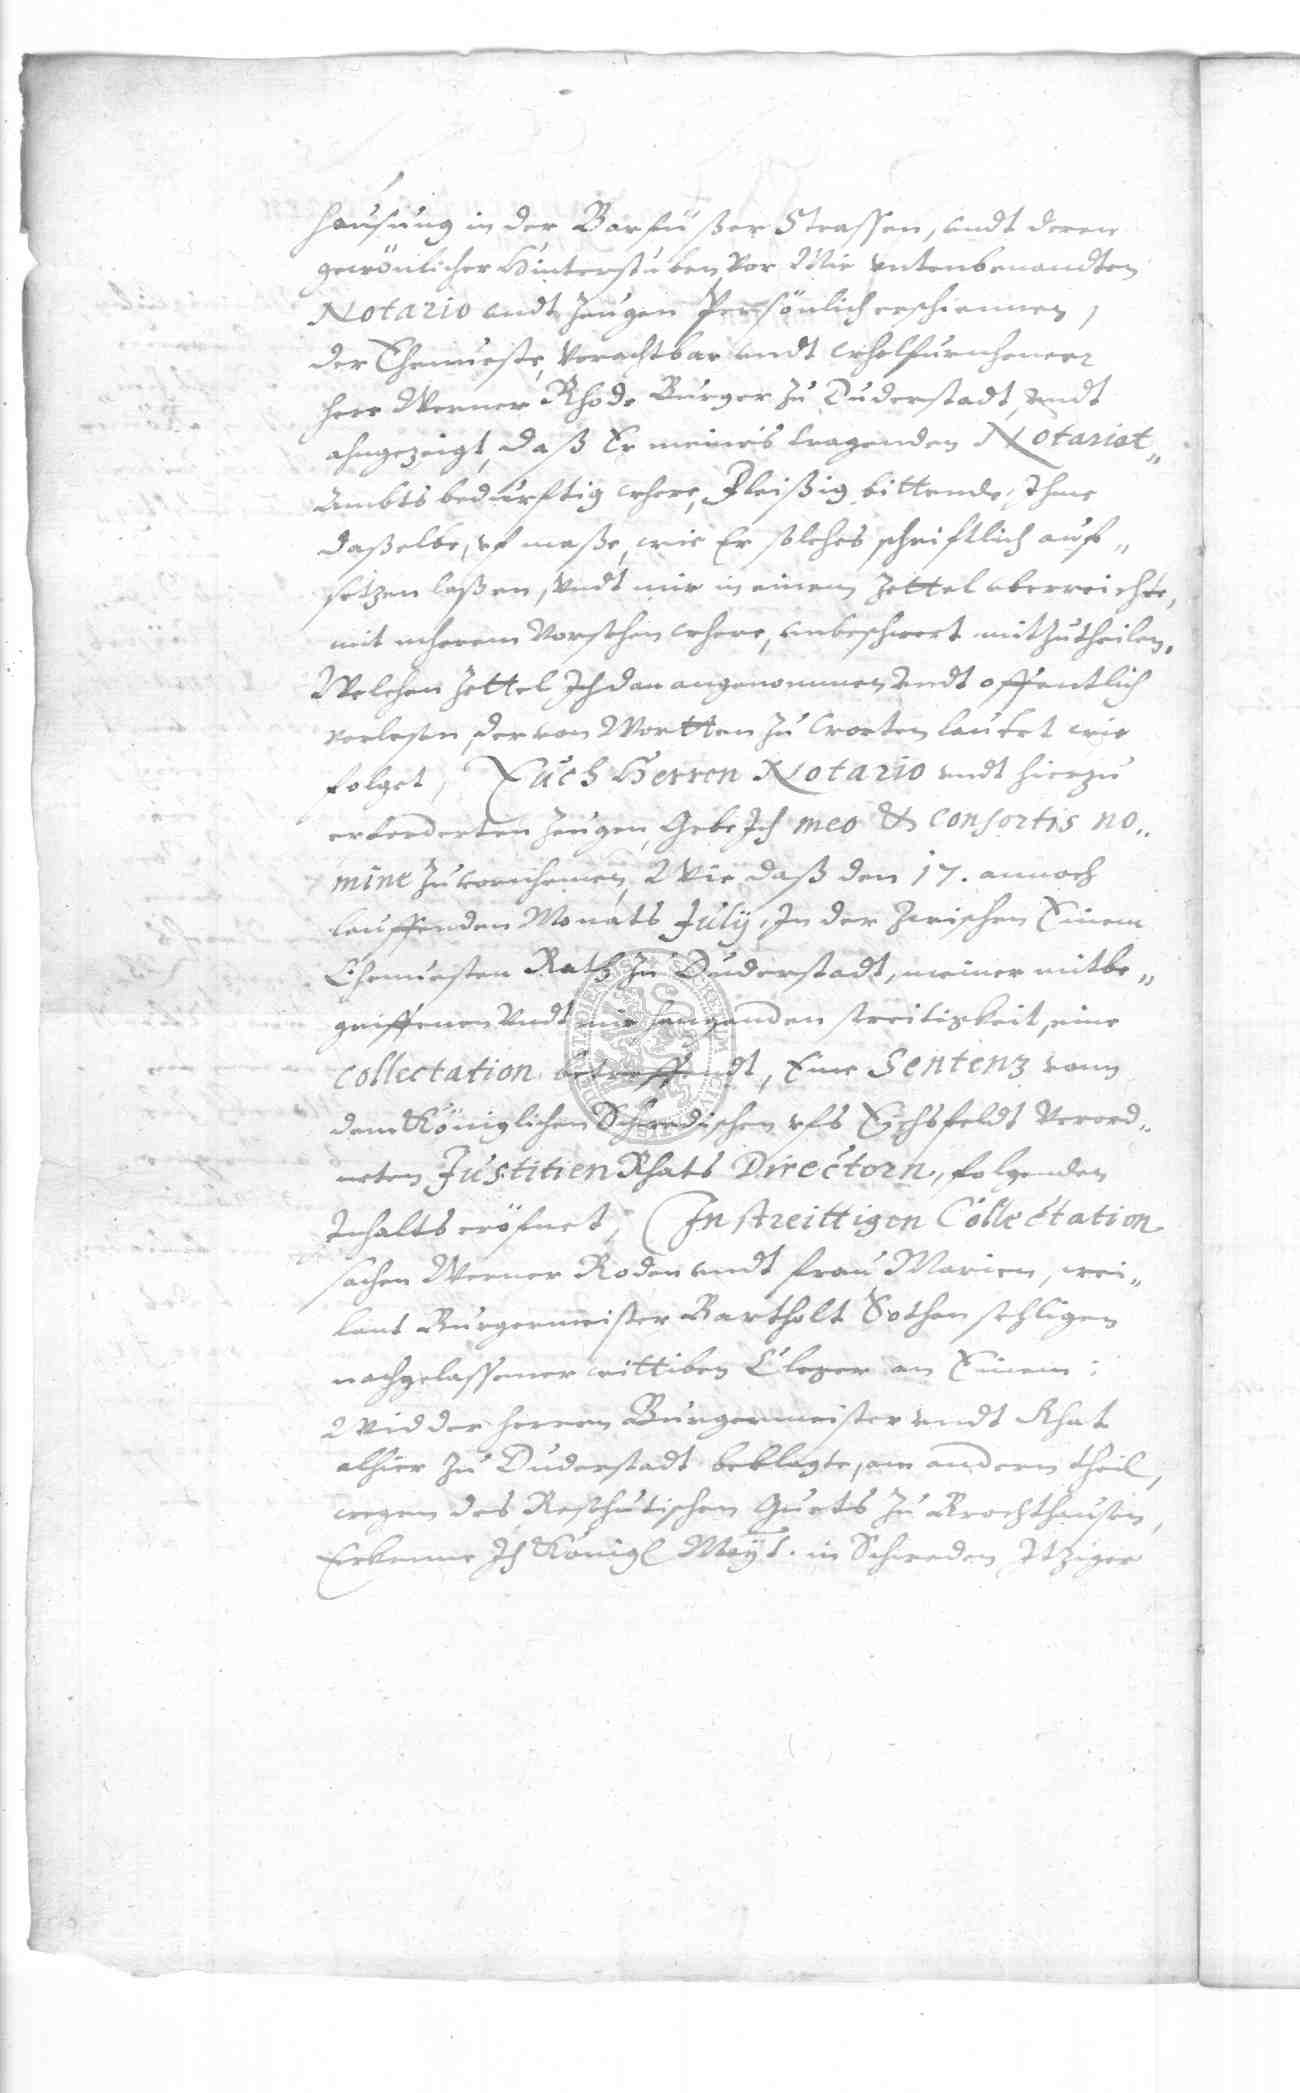 hausung in der Barfüßer Strassen, undt deren
gewönlicher Hinterstuben vor Mir untenbenandten
Notario undt Zeugen Persönlich erschiennen,
der Ehrnueste, Vorachtbar undt wholfurnhemer
Herr Werner Rhode Burger zu Duderstadt, undt
ahngezeigt, daß Er meines tragenden Notariat„
Ambts bedürftig were, Fleißig bittende, Ihme
daßelbe, uf maße, wie Er solches schriftlich auf„
setzen laßen, undt mir in einem Zettel uberreichte,
mit mherem Vorsehen were, unbeschwert mitzutheilen.
Welchen Zettel Ich dan angenommen undt offentlich
verlesen, der von Wortten zu Worten lautet wie
folget, Euch Herren Notario undt hierzu
erforderten Zeugen, Gebe Ich meo & consortis no„
mine zuvornhemen, Wie daß den 17. annoch
lauffenden Monats July, In der Zwischen Einem
Ehrnuesten Rath zu Duderstadt, meiner mitbe„
griffenen undt mir hangenden streitigkeit, eine
Collectation betreffendt, Eine Sentenz vom
dem Königlichen Schwedischen ufs Eichsfeldt Verord„
neten Justitien Rhats Directorn, folgenden
Inhalts eröfnet, In streittigen Collectation
sachen Werner Roden undt frau Marien, wei„
lant Burgermeister Bartholt Sothen sehligen
nachgelassener wittiben Cleger an Einem:
Widder Herren Burgermeister undt Rhat
alhier zu Duderstadt beklagte, am andern theil,
wegen des Guets zu Brochthausen,
Erkenne Ich Königl Mayt. in Schweden, Itziger